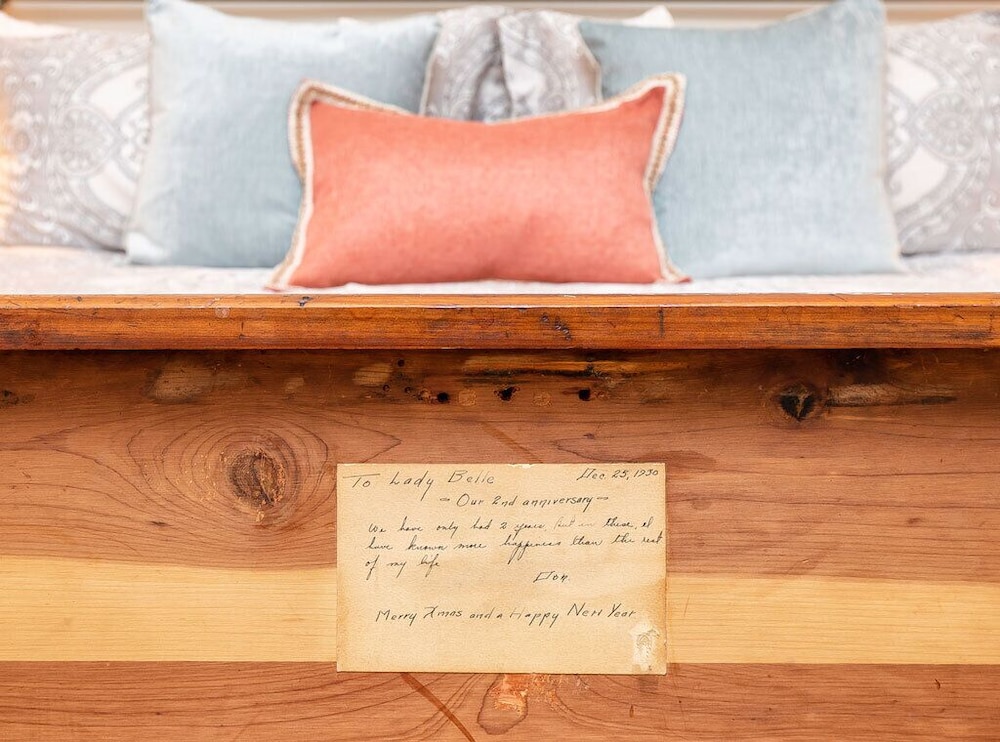 To Lady Belle
Dec 25, 1930
- Our 2nd anniversary -
We have only had 2 years, but in these, I
have known more happiness than the rest
of my life
Don.
Merry Xmas and a Happy New Year